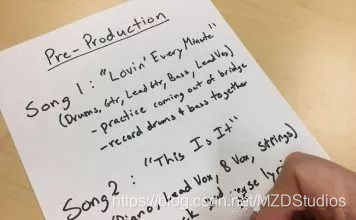 Pre-Production
Song 1: "Lovin' Every Minute"
(Drums, Gtr, Lead Gtr, Bass, Lead Vox)
- practice coming out of bridge
- record drums & bass together
Song 2: "This Is It"
(Piano, Lead Vox, B Vox, Strings)
verse
https://blog.csdn.net/MZDStudios